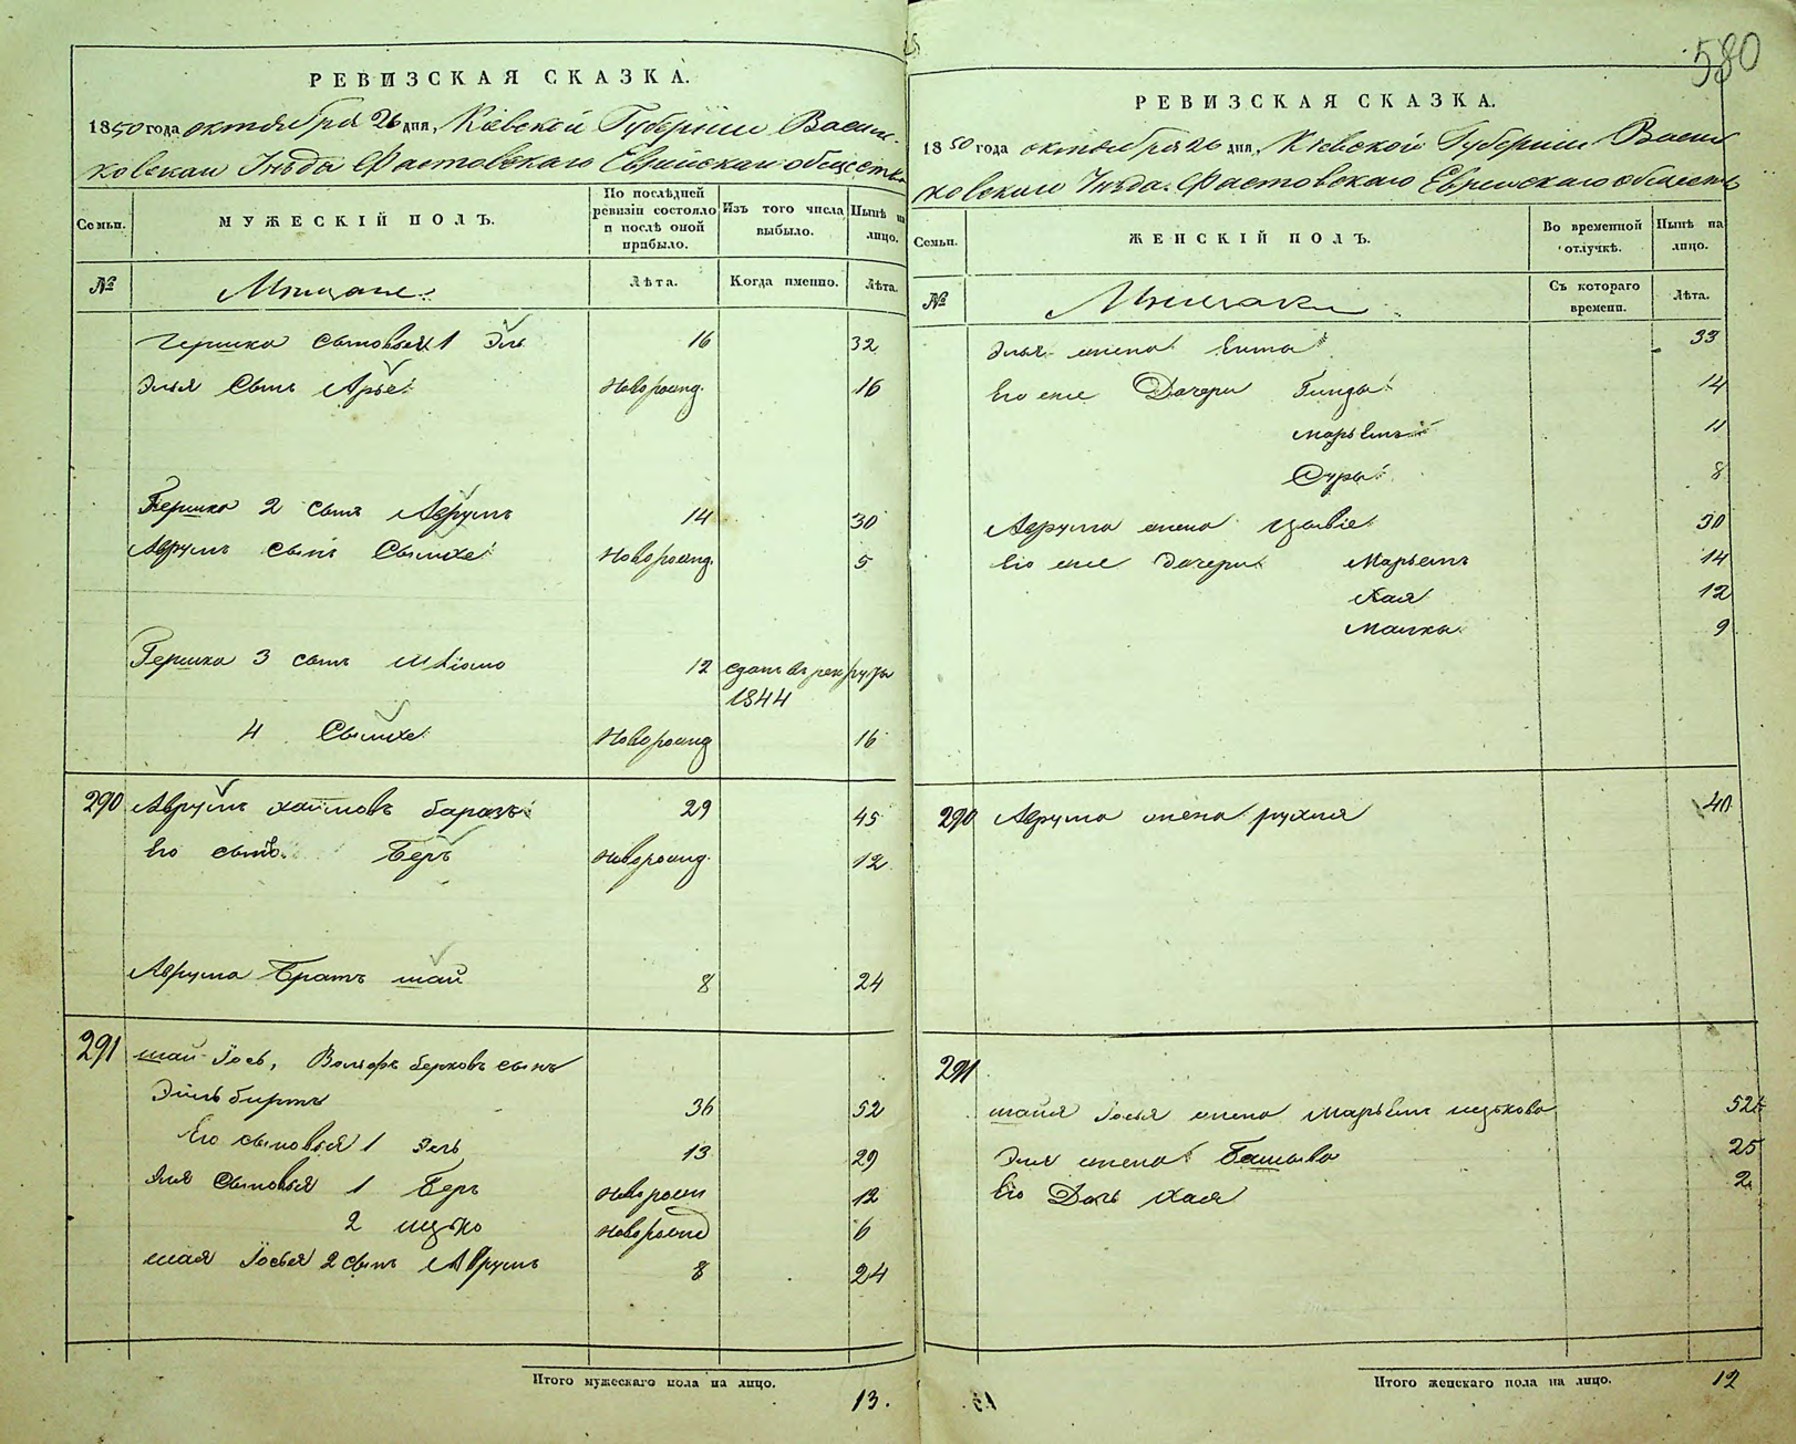 РЕВИЗСКАЯ СКАЗКА.
1850 года октября 26 дня, Кіевской Губерніи Василь-
ковскаго Уѣзда Фастовскаго Еврейскаго общества
Семьи.
МУЖЕСКІЙ ПОЛЪ.
По послѣдней ревизіи состояло и послѣ оной прибыло.
Изъ того числа выбыло.
Нынѣ на лицо.
№
Мѣщане
Лѣта.
Когда именно.
Лѣта.
Гершка сыновья 1 Эль 16 32
Элья сынъ Арье новорожд. 16
Гершка 2 сынъ Аврумъ 14 30
Аврумъ сынъ Сымхе новорожд. 5
Гершка 3 сынъ 12 сданъ въ рекруты
1844
4 Сымхе новорожд 16
290 Аврумъ хаимовъ баразъ 29 45
Его сынъ Беръ новорожд. 12
Аврума братъ шай 8 24
291 шай-Іось, Вольфъ берковъ сынъ
36 52
Его сыновья 1 Эль 13 29
Эля сыновья 1 Беръ новорожд 12
2 ицько новорожд 6
шая Іосья 2 сынъ Аврумъ 8 24
Итого мужескаго пола на лицо.
13.
580
РЕВИЗСКАЯ СКАЗКА.
1850 года октября 26 дня, Кіевской Губерніи Василь
ковскаго Уѣзда Фастовскаго Еврейскаго обществ
Семьи.
ЖЕНСКІЙ ПОЛЪ.
Во временной отлучкѣ.
Нынѣ на лицо.
№
Мѣщанки
Съ котораго времени.
Лѣта.
Элья жена Ента 33
Его же Дочери Гинда 14
марьемъ 11
Сура 8
Аврума жена Цывіе 30
Его же дочери Марьемъ 14
Хая 12
Малка 9
290 Аврума жена рухля 40
291
шайя Іосья жена марьемъ ицькова 52
Эля жена Башева 25
Его Дочь хая 2
Итого женскаго пола на лицо.
12